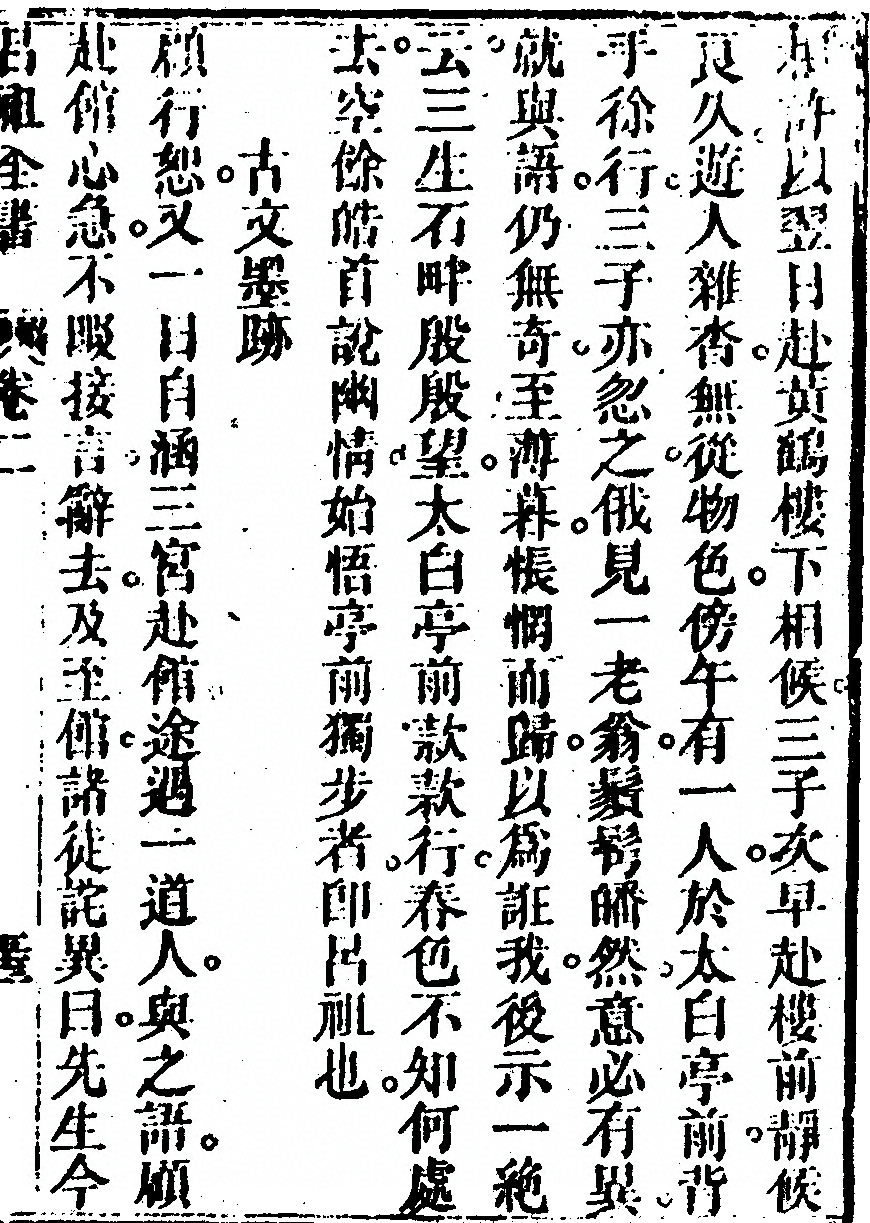 許以翌日赴黃鶴樓下相候三子次早赴樓前靜候
良久遊人雜沓無從物色傍午有一人於太白亭前背
手徐行三子亦忽之俄見一老翁鬚髩皤然意必有異
就與語仍無奇至薄暮悵惘而歸以爲誑我後示一絶
云三生石畔殷殷望太白亭前款款行春色不知何處
去空餘皓首說幽情始悟亭前獨步者卽呂祖也
古文墨跡
顧行恕又一日自涵三宮赴館途遇一道人與之語顧
赴館心急不暇接言辭去及至館諸徒詫異曰先生今
呂祖全書 卷二